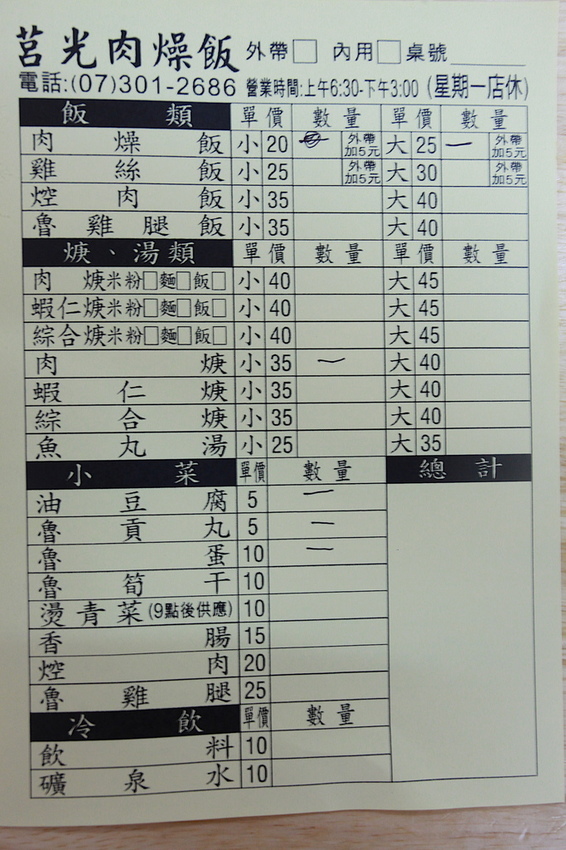 莒光肉燥飯 外帶□ 內用□桌號______
電話:(07)301-2686 營業時間:上午6:30-下午3:00 (星期一店休)
飯類 單價 數量 單價 數量
肉燥飯 小 20 外帶加5元 大 25 一 外帶加5元
雞絲飯 小 25 外帶加5元 大 30 外帶加5元
焢肉飯 小 35 大 40
魯雞腿飯 小 35 大 40
焿、湯類 單價 數量 單價 數量
肉焿米粉□麵□飯□ 小 40 大 45
蝦仁焿米粉□麵□飯□ 小 40 大 45
綜合焿米粉□麵□飯□ 小 40 大 45
肉焿 小 35 一 大 40
蝦仁焿 小 35 大 40
綜合焿 小 35 大 40
魚丸湯 小 25 大 35
小菜 單價 數量 總計
油豆腐 5 一
魯貢丸 5 一
魯蛋 10 一
魯筍干 10
燙青菜(9點後供應) 10
香腸 15
焢肉 20
魯雞腿 25
冷飲 單價 數量
飲料 10
礦泉水 10